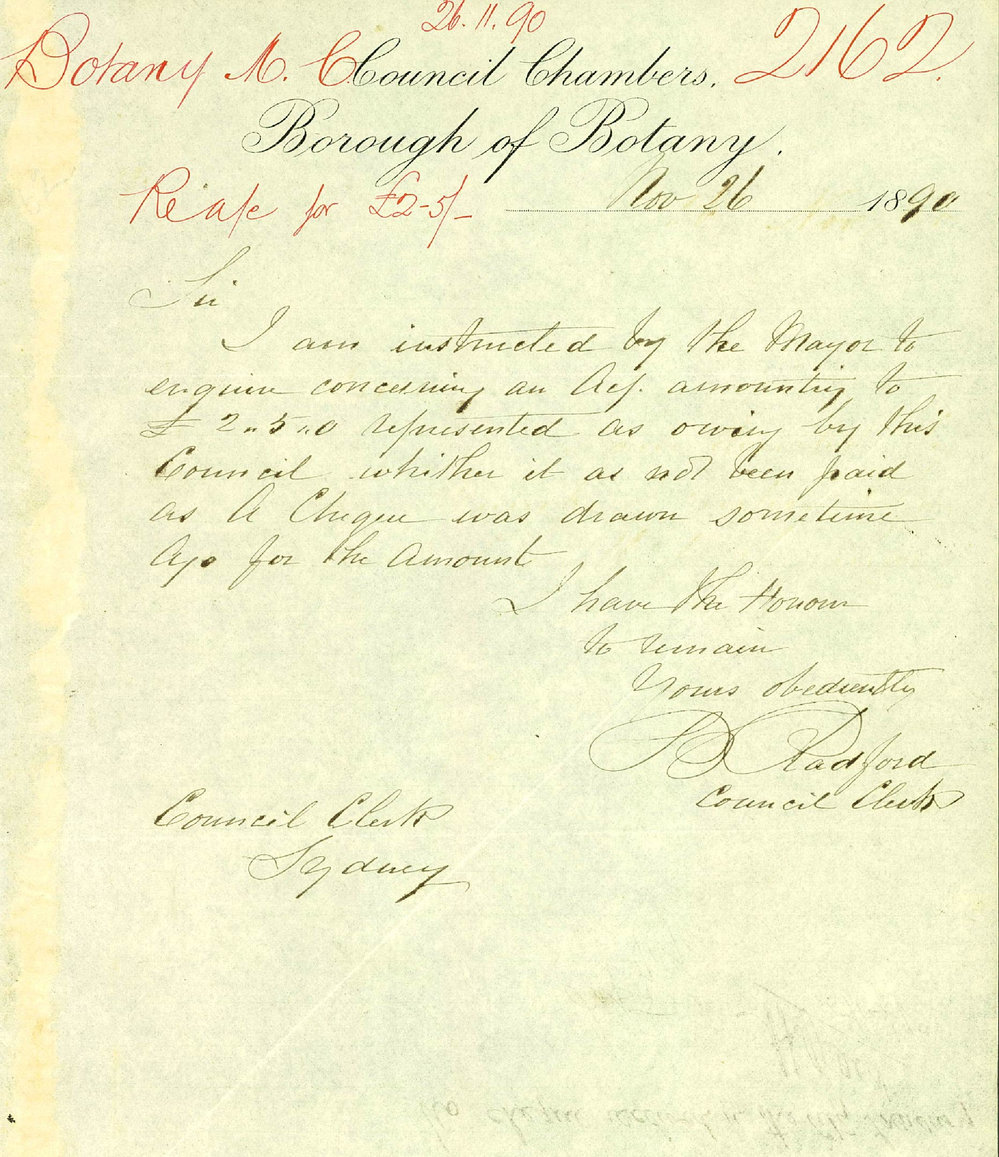 26.11.90
Botany M. C. Council Chambers. 2162.
Borough of Botany.
Re a/c for £2-5/-
Nov 26 1890
Sir
I am instructed by the Mayor to
enquire concerning an Acc. amounting to
£ 2.,5.,0 represented as owing by this
Council whither it as not been paid
as A Cheque was drawn sometime
Ago for the Amount
I have the Honour
to remain
Yours obediently
Radford
Council Clerk
Council Clerk
Sydney